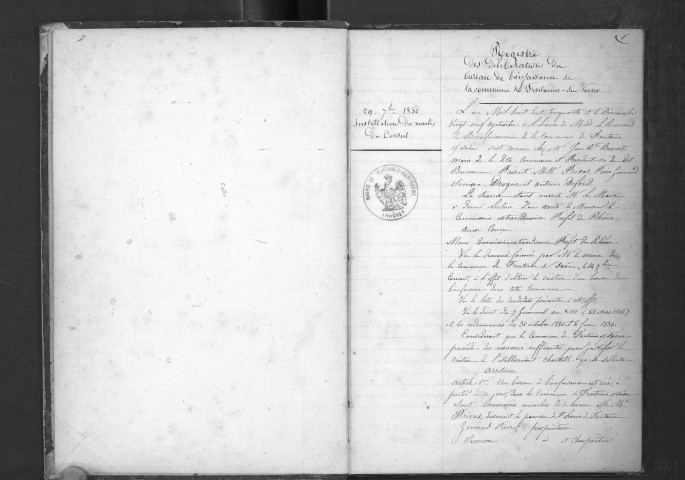 2
1
29 7bre 1850
Installation des membres
du Conseil
Régistre
des délibérations du
bureau de bienfaisance de
la commune de Fontaines-sur-Saone
L'an Mil huit cent cinquante et le Dimanche
vingt neuf septembre à l'heure de Midi le Bureau
de Bienfaisance de la commune de Fontaine
s/saône s'est réuni chez M. Jean
maire de la dite Commune et Président du dit
Bureau. Présents MM. Privas, Pierre
Simon, et Antoine
La séance étant ouverte M. le Maire
a donné lecture d'un arrêté de Monsieur le
Commissaire extraordinaire Préfet du Rhône
ainsi conçu
Nous Commissaire extraordinaire Préfet du Rhône
Vu la demande formée par M. le maire de
la Commune de Fontaine s/ Saône, le 14 7bre
Courant, à l'effet d'obtenir la création d'un bureau de
bienfaisance dans cette commune
Vu la liste des candidats présentée à cet effet
Vu le décret du 7 Germinal an XIII (28 Mars 1805)
et les ordonnances des 31 octobre 1821 et 6 juin 1830.
Considérant que la Commune de Fontaine s/saône
possède des ressources suffisantes pour justifier la
création de l'établissement charitable qu'elle sollicite
arrêtons
article 1er. Un bureau de bienfaisance est créé, à
partir de ce jour, dans la Commune de Fontaine s/saône
Sont nommés membres de ce bureau MM.
Privas, desservant la paroisse de St Louis de Fontaine
propriétaire
Simon id et Charpentier